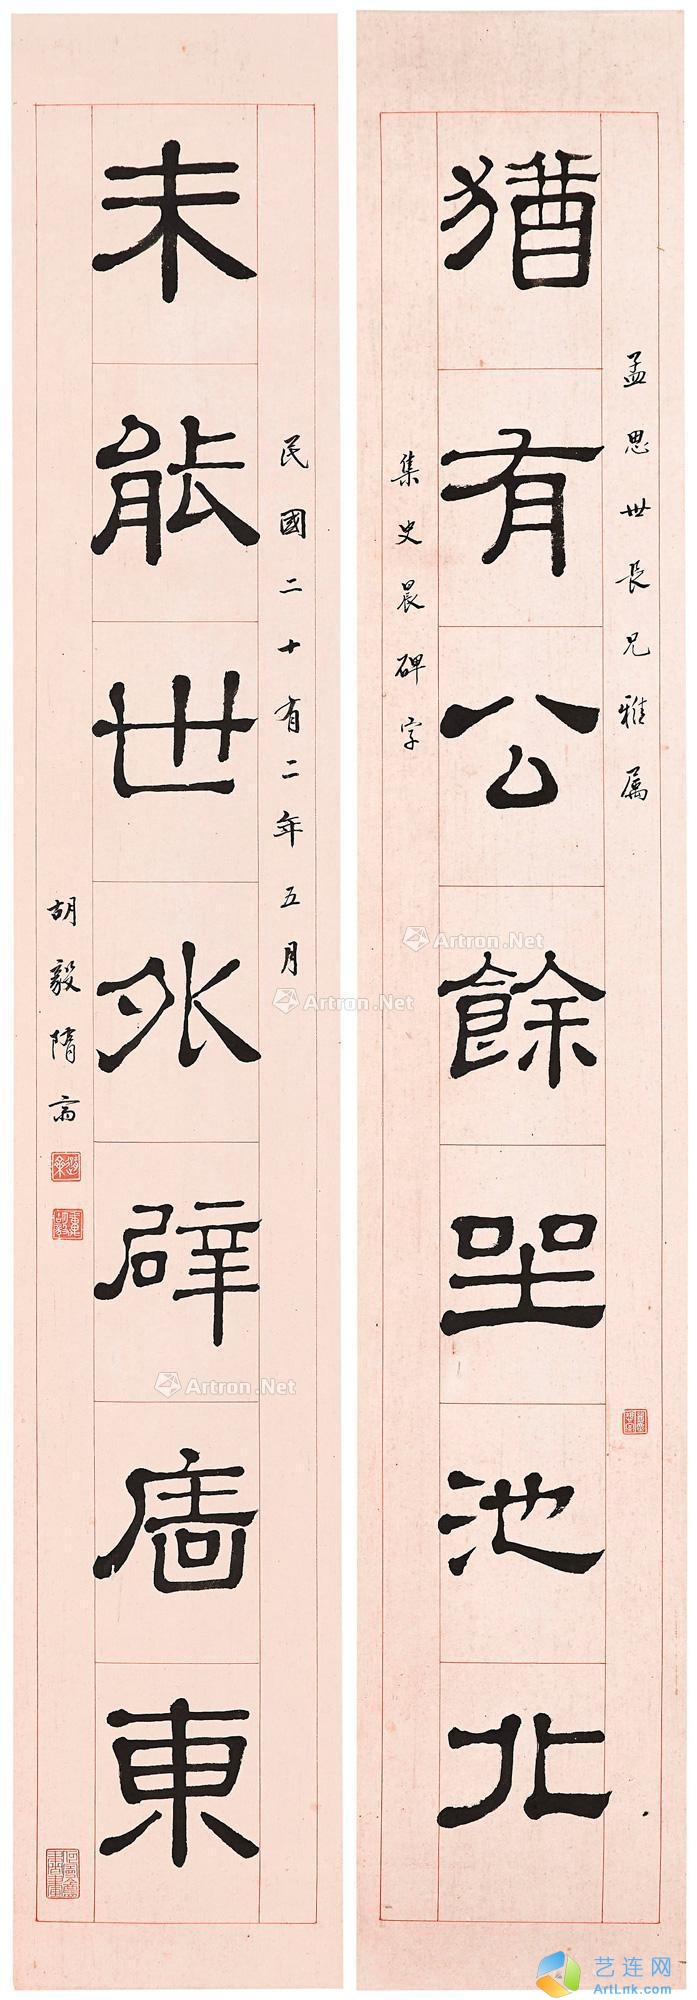 孟思世長兄雅属
猶有公餘坐池北
集史晨碑字
民國二十有二年五月
未能世外辟廧東
胡毅隋斋
Artron.Net
Artron.Net
Artron.Net
艺连网
ArtLnk.com